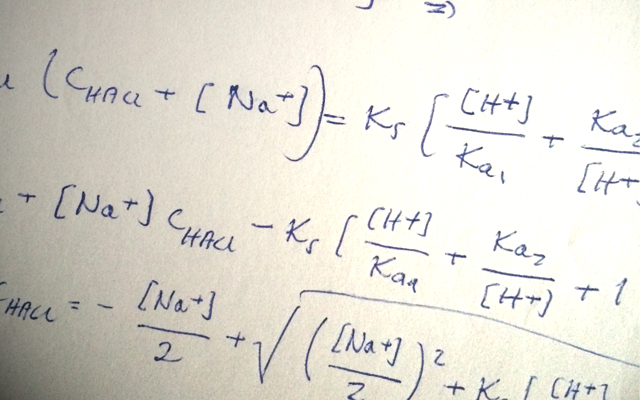 (C_HAu + [Na+]) = Ks [ [H+]/Ka1 + Ka2/[H+
+ [Na+] C_HAu - Ks [ [H+]/Ka1 + Ka2/[H+] + 1
C_HAu = - [Na+]/2 + √( ([Na+]/2)^2 + K [ [H+]